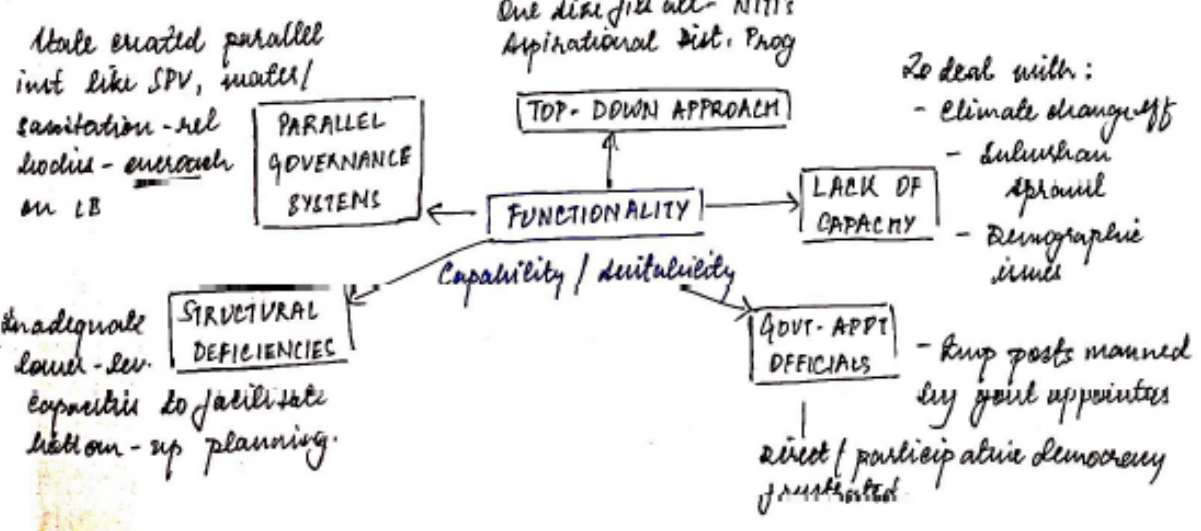 One size fits all - NITI's
Aspirational Dist. Prog
TOP-DOWN APPROACH
State created parallel
inst like SPV, water/
sanitation-rel
bodies - encroach
on LB
PARALLEL
GOVERNANCE
SYSTEMS
FUNCTIONALITY
Capability / suitability
LACK OF
CAPACITY
To deal with:
- Climate change eff
- Suburban
sprawl
- Demographic
issues
STRUCTURAL
DEFICIENCIES
Inadequate
lower-lev.
capacities to facilitate
bottom-up planning.
GOVT-APPT
OFFICIALS
- Imp posts manned
by govt appointees
Direct / participative democracy
frustrated